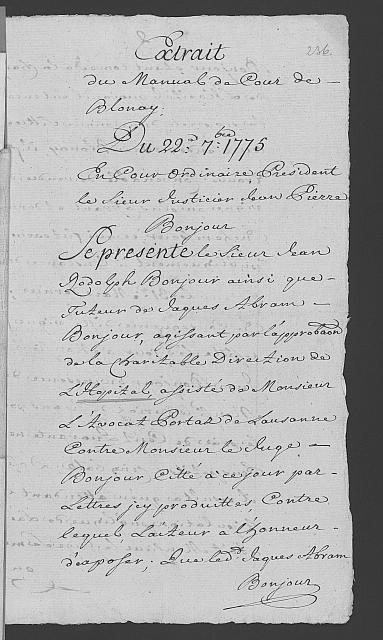 236.
Extrait
du Manual de Cour de
Blonay.
Du 22.e 7.bre 1775
En Cour Ordinaire, President
le Sieur Justicier Jean Pierre
Bonjour
Se presente le Sieur Jean
Rodolph Bonjour ainsi que
Tuteur de Jaques Abram
Bonjour, agissant par l'approbaon
de la Charitable Direction de
L'Hopital, assisté de Monsieur
L'Avocat Portaz de Lausanne
Contre Monsieur le Juge
Bonjour Citté a ce jour par
Lettres icy produittes, Contre
lequel L'acteur a l'honneur
d'exposer; Que led.t Jaques Abram
Bonjour